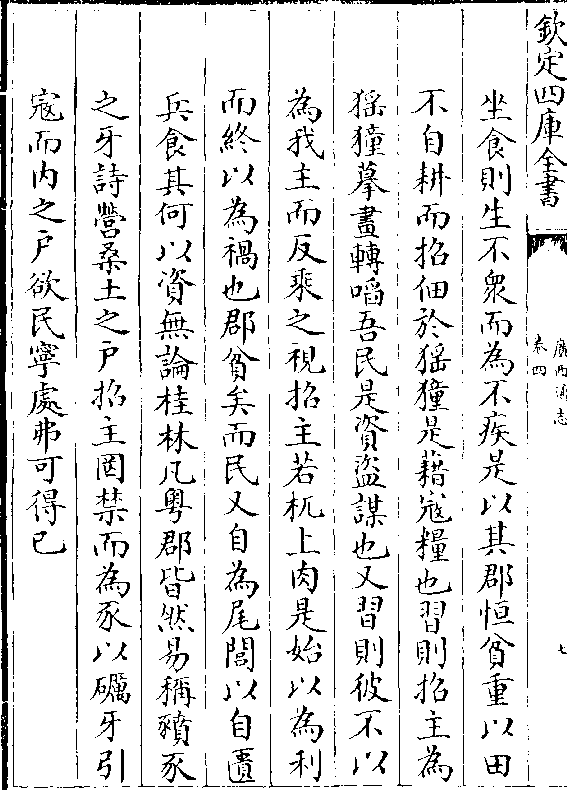 欽定四庫全書
廣西通志
卷四
七
坐食則生不衆而為不疾是以其郡恒貧重以田
不自耕而招佃於猺獞是藉寇糧也習則招主為
猺獞摹畫轉㗖吾民是資盜謀也又習則彼不以
為我主而反乘之視招主若杌上肉是始以為利
而終以為禍也郡貧矣而民又自為尾閭以自匱
兵食其何以資無論桂林凡粤郡皆然易稱豶豕
之牙詩營桑土之戶招主罔禁而為豕以礪牙引
寇而内之戶欲民寧處弗可得已